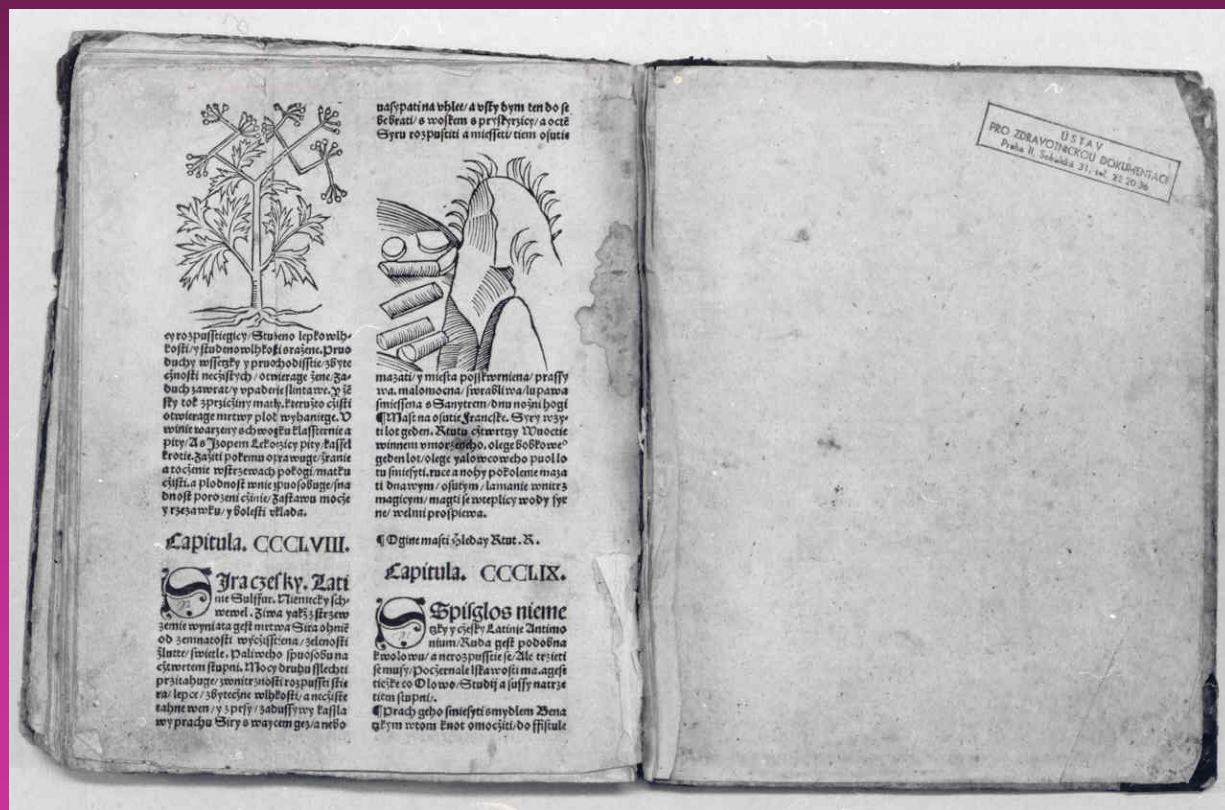 ey rozpusstiegicy/ Stuzeno lepkowlh-
kosti/ y studenowlhkosti srazene. Pruo
duchy wssetzky y pruochodisstie/ zbyte
cznosti neczistych/ otwierage zene/ Za-
duch zawrat/ y vpadenie slintawe. Y ze
sky tok zprzicziny matky. kteruzto czisti
otwierage mrtwy plod wyhaniege. V
winie warzeny schwogku klassternie a
pity/ A s Jzopem Lekorzicy pity/ kassel
krotie. Zaziti pokrmu oprawuge/ zranie
a toczenie wstrzewach pokogi/ matku
czisti. a plodnost wnie zpuosobuge/ sna
dnost porozeni czinie/ Zastawu mocze
y rzezawku/ y bolesti vklada.
Capitula. CCCLVIII.
SJra czesky. Lati
nie Sulffur. Niemecky sch-
wewel. Ziwa yakz z strzew
zemie wyniata gest mrtwa Sira ohnie
od zemnatosti wyczisstiena/ zelenosti
zlutte/ swietle. Paliweho spuosobu na
cztwrtem stupni. Mocy druhu sslechti
przitahuge/ zwnitrznosti rozpusstie stie
ra/ lepce/ zbyteczne wlhkosti/ a necziste
tahne wen/ y z prsy/ zadussywy kassla
wy prachu Siry s waycem gez/ a nebo
nasypati na vhlee/ a vsty dym ten do se
be brati/ s woskem s pryskyrzicy/ a octe
Syru rozpustiti a miesseti/ tiem osutie
mazati/ y miesta posskwrniena/ prassy
wa. malomocna/ swrabliwa/ lupawa
smiessena s Sanytrem/ dnu nozni hogi
¶ Mast na osutie Francske. Syry wzy-
ti lot geden. Rtutu cztwrtzy Wuoctie
winnem vmorzeneho. olege bobkoweº
geden lot/ olege yalowcoweho puol lo
tu smiesyti. ruce a nohy po kolene maza
ti dnawym/ osutym/ lamanie wnitrz
magicym/ magti se wteplicy wody syr
ne/ welmi prospiewa.
¶ O gine masti Hleday Rtut. R.
Capitula. CCCLIX.
SSpisglos nieme
tzky y czesky Latinie Antimo
nium/ Ruda gest podobna
k wolowu/ a nerozpusstie se/ Ale trzieti
se musy/ Poczernale lskawosti ma. a gest
tiezke co Olowo/ Studij a sussy na trze
tiem stupni.
¶ Prach geho smiesyti s mydlem Bena
tzkym wtom knot omocziti/ do ffistule
ÚSTAV
PRO ZDRAVOTNICKOU DOKUMENTACI
Praha II, Sokolská 31, tel. 22 20 36